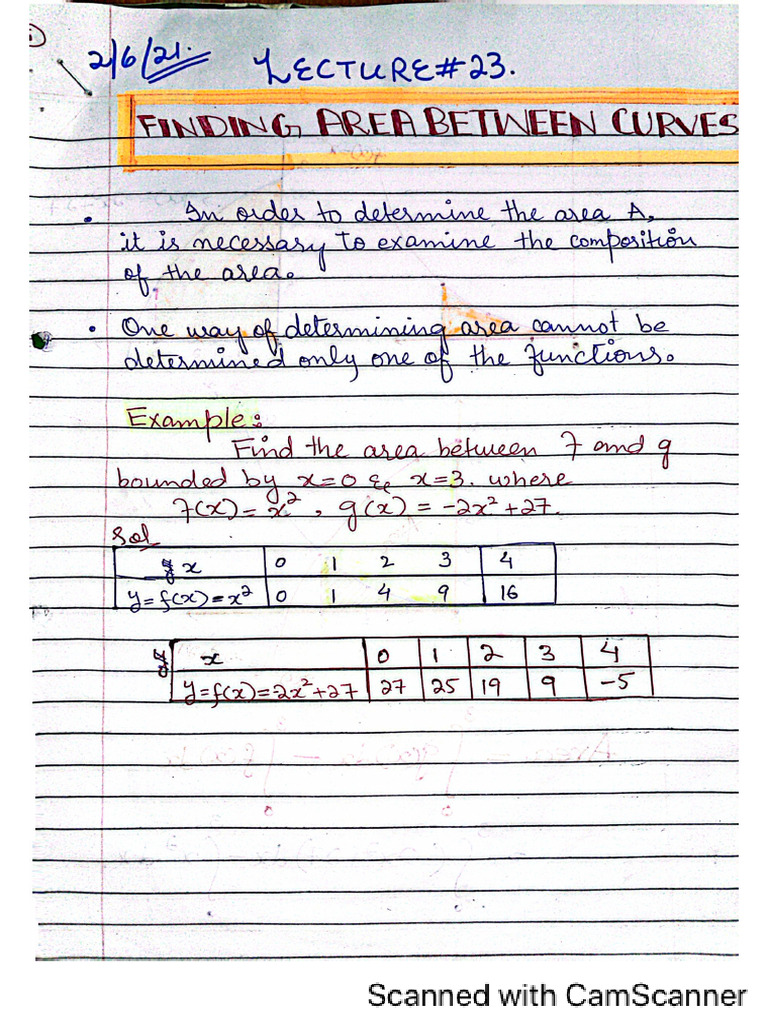 2/6/21.
LECTURE#23.
FINDING AREA BETWEEN CURVES
• In order to determine the area A,
it is necessary to examine the composition
of the area.
• One way of determining area cannot be
determined only one of the functions.
Example:
Find the area between f and g
bounded by x=0 & x=3. where
f(x)=x², g(x)=-2x²+27.
Sol
x 0 1 2 3 4
y=f(x)=x² 0 1 4 9 16
x 0 1 2 3 4
y=f(x)=-2x²+27 27 25 19 9 -5
Scanned with CamScanner